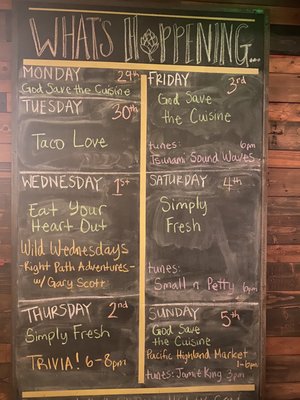 WHAT'S HOPPENING...
MONDAY 29th
God Save the Cuisine
TUESDAY 30th
Taco Love
WEDNESDAY 1st
Eat Your
Heart Out
Wild Wednesdays
- Right Path Adventures -
w/ Gary Scott
THURSDAY 2nd
Simply Fresh
TRIVIA! 6-8pm
FRIDAY 3rd
God Save
the Cuisine
tunes: 6pm
Tsunami Sound Waves
SATURDAY 4th
Simply
Fresh
tunes:
Small n Petty 6pm
SUNDAY 5th
God Save
the Cuisine
Pacific Highland Market
1-6pm
tunes: Jamie King 3pm